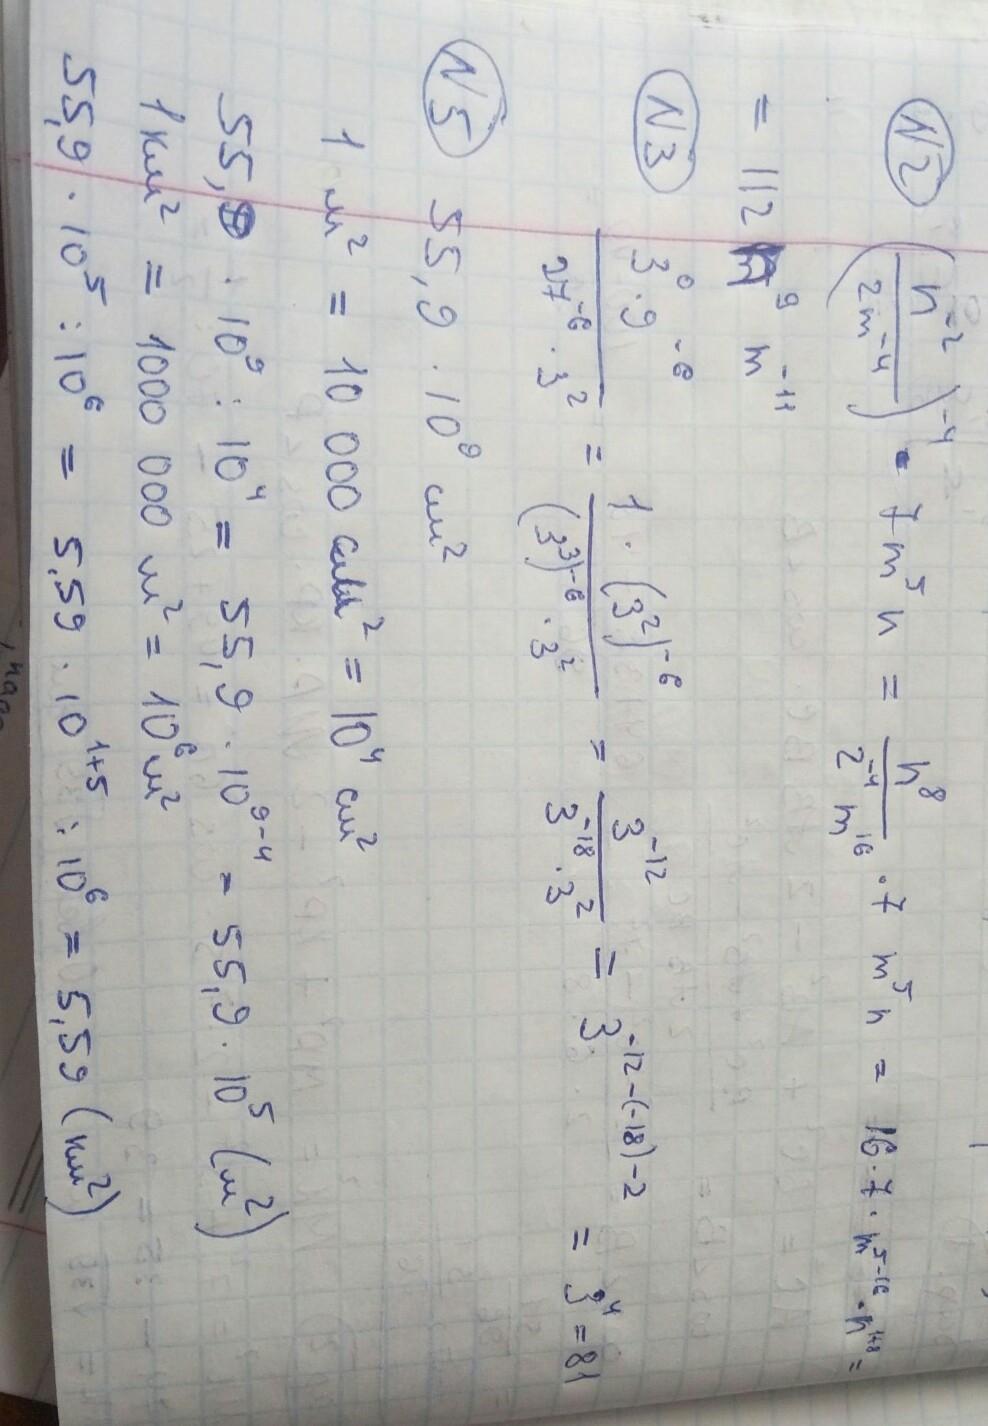 N2 (n⁻²/2m⁻⁴)⁻⁴ · 7m⁵n = n⁸/2⁻⁴m¹⁶ · 7 m⁵n = 16·7·m⁵⁻¹⁶·n¹⁺⁸ =
= 112 n⁹ m⁻¹¹
N3 3⁰·9⁻⁶/27⁻⁶·3² = 1·(3²)⁻⁶/(3³)⁻⁶·3² = 3⁻¹²/3⁻¹⁸·3² = 3⁻¹²⁻⁽⁻¹⁸⁾⁻² = 3⁴ = 81
N5 55,9 · 10⁹ см²
1 м² = 10 000 см² = 10⁴ см²
55,9 · 10⁹ : 10⁴ = 55,9 · 10⁹⁻⁴ = 55,9 · 10⁵ (м²)
1 км² = 1000 000 м² = 10⁶ м²
55,9 · 10⁵ : 10⁶ = 5,59 · 10¹⁺⁵ : 10⁶ = 5,59 (км²)